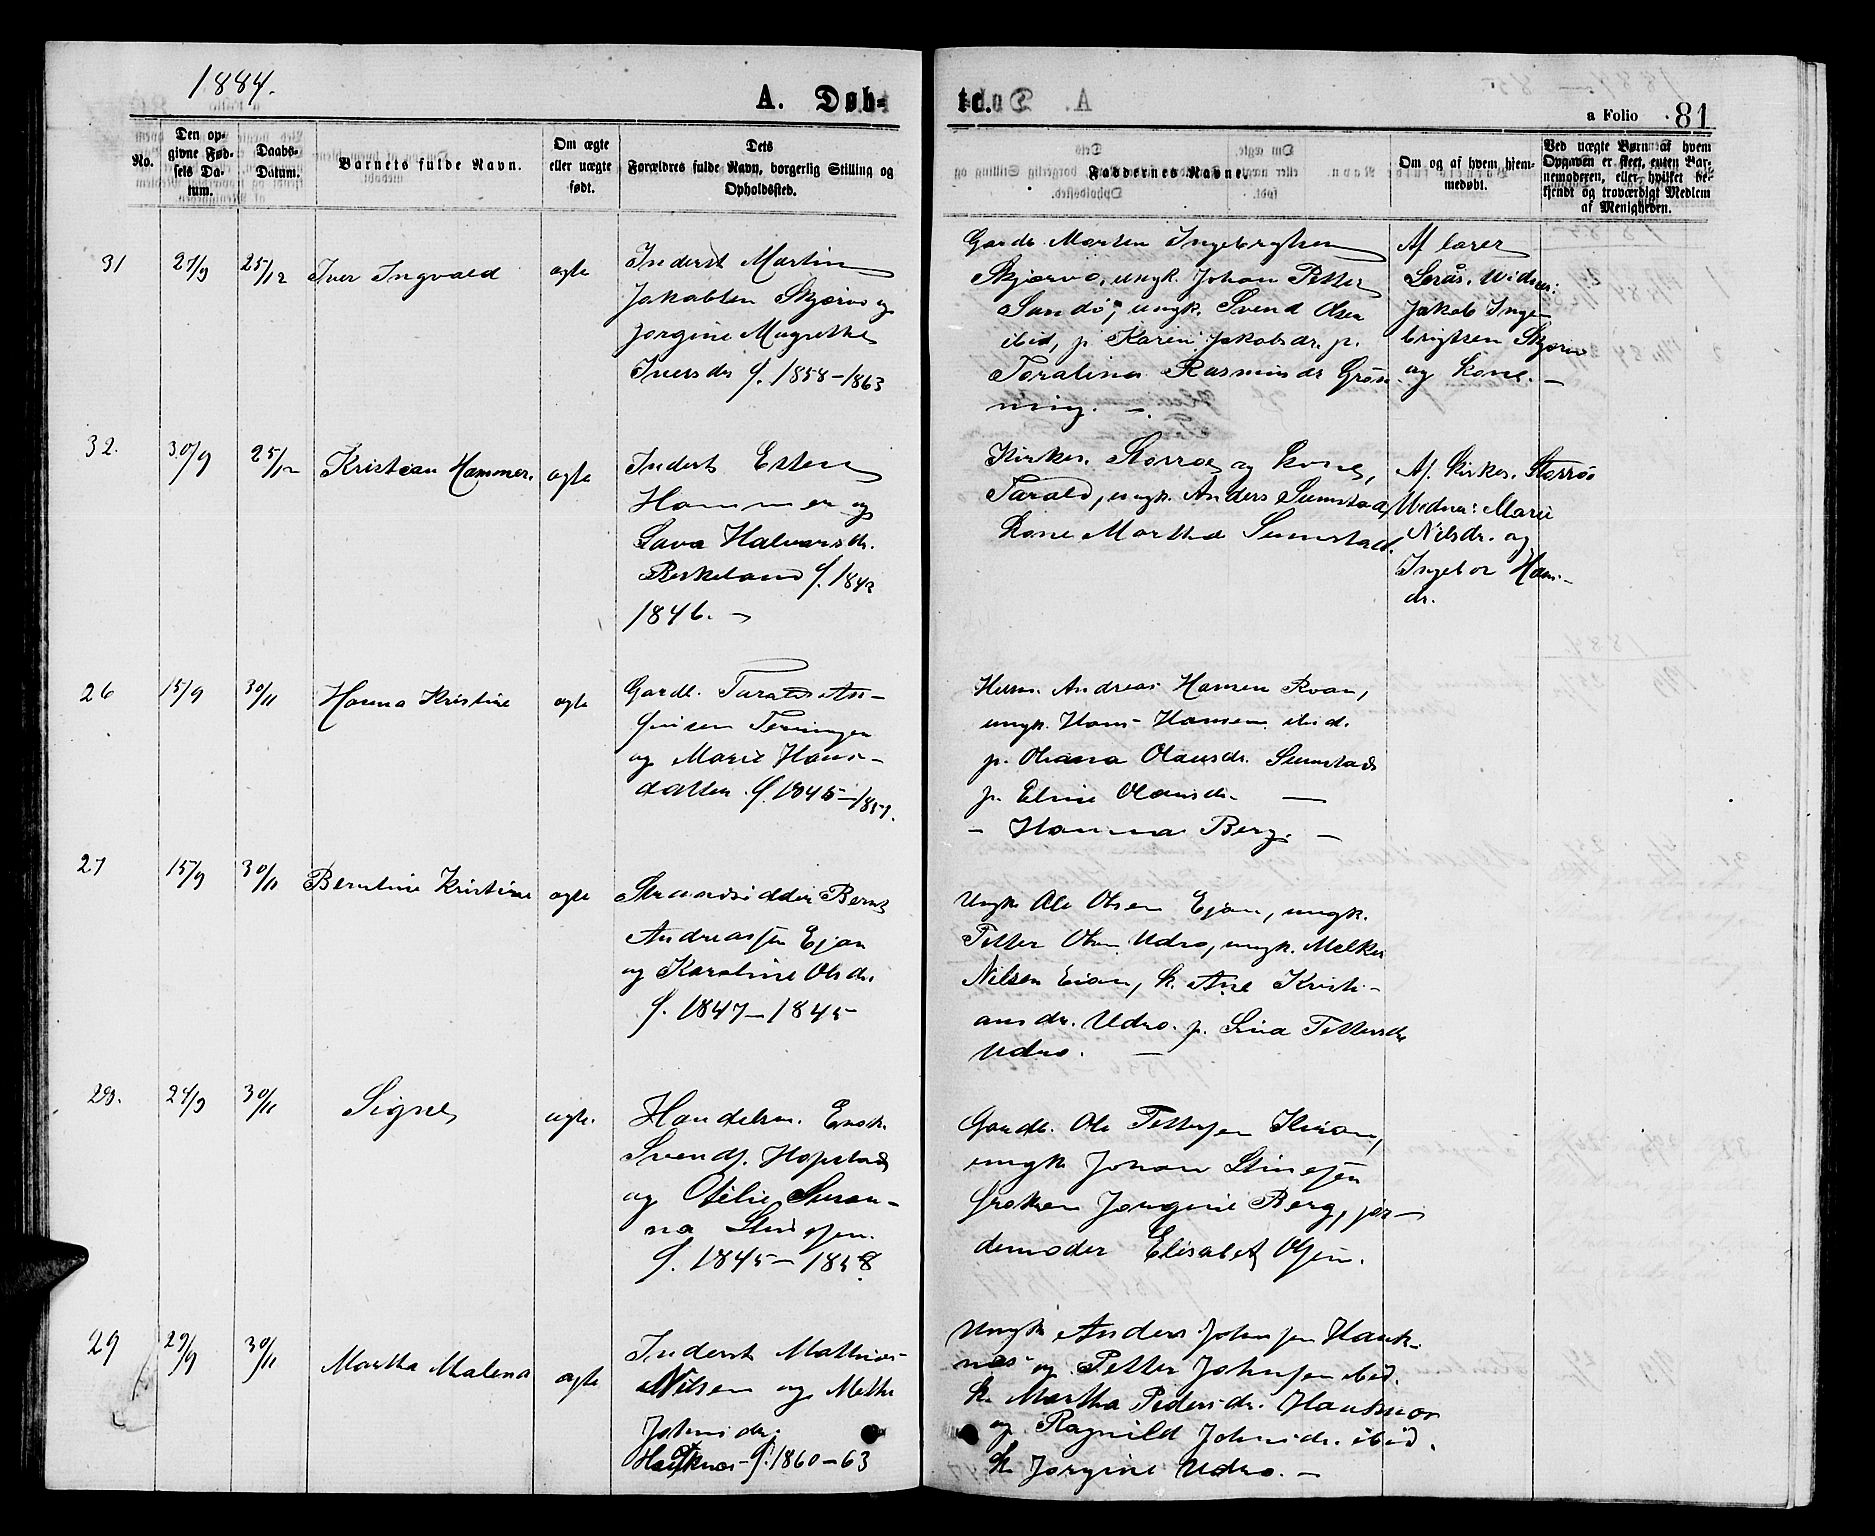 1884.
A. Døb-
te.
a Folio 81
No.
Den op-
givne Fød-
sels Da-
tum.
Daabs-
Datum.
Barnets fulde Navn.
Om ægte
eller uægte
født.
Dets
Forældres fulde Navn, borgerlig Stilling og
Opholdssted.
Faddernes Navne.
Om og af hvem hjem-
medøbt.
Ved uægte Børn af hvem
Opgaven er skeet, enten Bar-
nemoderen, eller hvilket be-
kjendt og troværdigt Medlem
af Menigheden.
31
27/9
25/12
Iver Ingvald
ægte
Inderst Martin
Jakobsen Skjærvø og
Jørgine Magrethe
Iversdr f. 1858-1863
Gardb. Morten Ingebrigtsen
Skjærvø, ungk. Johan Petter
Sandø, ungk. Svend Olsen
ibid, p. Karen Jakobsdr. p.
Toralina Rasmusdr Grøn-
ning. -
Af lærer
Serås. Widner:
Jakob Inge-
brigtsen Skjærvø
og kone. -
32.
30/9
25/12
Kristian Hammer.
ægte
Inderst Esten
Hammer og
Lava Halvorsdr.
Birkeland f. 1842
1846. -
Kirkes. Storrø og kone,
Tarald, ungk. Anders Sumstad,
kone Martha Sumstad.
Af kirkes. Storrø
Widner: Marie
Nilsdr. og
Ingebor Hans-
dr.
26
15/9
30/11
Hanna Kristine
ægte
Gardb. Tarald An-
finsen Terningen
og Marie Hans-
datter. f. 1845-1851.
Husm. Andreas Hansen Kvan,
ungk. Hans Hansen ibid.
p. Oliana Olausdr. Sumstad
p. Eline Olausdr. -
- Hanna Berg. -
27
15/9
30/11
Berntine Kristine
ægte
Strandsidder Bernt
Andreassen Ejan
og Karoline Olsdr.
f. 1847-1845
Ungk Ole Olsen Ejan, ungk.
Petter Olsen Udrø, ungk. Melker
Nilsen Eian, k. Ane Kristi-
ansdr. Udrø. p. Lina Pettersdr
Udrø. -
28.
24/9
30/11
Signe
ægte.
Handelsm. Enok
Svends. Hopstad
og Otelie Susan-
na Stensen.
f. 1845-1858
Gardb. Ole Pettersen
ungk Johan Stinesen
frøken Jørgine Berg, jor-
demoder Elisabet Olsen.
29
29/9
30/11
Martha Malena
ægte
Inderst Mathias
Nilsen og Mette
Johnsdr.
Hauknes f. 1860-63
Ungk Anders Johnsen Hauk-
nes og Petter Johnsen ibid.
k. Martha Pedersdr. Hauknes
og Ragnild Johnsdr. ibid.
k. Jørgine Udrø. -